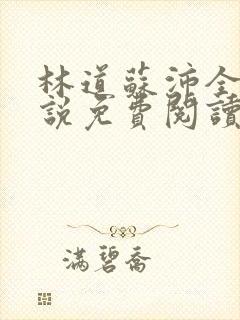 林道蘇沛全
說免費閱讀
滿碧喬